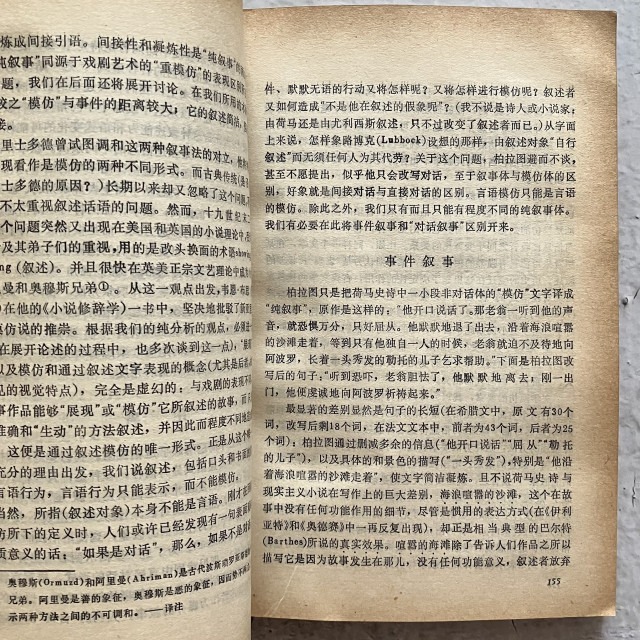 炼成间接引语。间接性和凝炼性是“纯叙事”的
纯叙事”同源于戏剧艺术的“重模仿”的表现区别
题，我们在后面还将展开讨论。在我们所用
较之“模仿”与事件的距离较大；它的叙述简洁，
接。
里士多德曾试图调和这两种叙事法的对立，
现看作是模仿的两种不同形式。而古典传统
士多德的原因？）长期以来却又忽略了这个问题，
不太重视叙述话语的问题。然而，十九世纪末
个问题突然又出现在美国和英国的小说理论中，
及其弟子们的重视，用的是改头换面的术语
ng（叙述）。并且很快在英美正宗文艺理论中
曼和奥穆斯兄弟①。从这一观点出发，韦恩·布
）在他的《小说修辞学》一书中，坚决地批驳了新
模仿说的推崇。根据我们的纯分析的观点，必须
在展开论述的过程中，也多次谈到这一点），
以及模仿和通过叙述文字表现的概念（尤其是后者
见的视觉特点），完全是虚幻的：与戏剧的表现不
事作品能够“展现”或“模仿”它所叙述的故事，而
准确和“生动”的方法叙述，并因此而程度不同地
这便是通过叙述模仿的唯一形式。正是从这个
充分的理由出发，我们说叙述，包括口头和书面
言语行为，言语行为只能表示，而不能模仿。
当然，所指（叙述对象）本身不能是言语。刚才
仿所下的定义时，人们或许已经发现有一句表面
质意义的话：“如果是对话”，那么，如果不是对
奥穆斯(Ormurd)和阿里曼(Ahriman)是古代波斯
兄弟。阿里曼是善的象征，奥穆斯是恶的象征，因而势不
示两种方法之间的不可调和。——译注
件、默默无语的行动又将怎样呢？又将怎样进行模仿呢？叙述者
又如何造成“不是他在叙述的假象呢”？（我不说是诗人或小说家；
由荷马还是由尤利西斯叙述，只不过改变了叙述者而已。）从字面
上来说，怎样象路博克(Lubbock)设想的那样，由叙述对象“自行
叙述”而无须任何人为其代劳？关于这个问题，柏拉图避而不谈，
甚至不愿提出，似乎他只会改写对话，至于叙事体与模仿体的区
别，好象就是间接对话与直接对话的区别。言语模仿只能是言语
的模仿。除此之外，我们只有而且只能有程度不同的纯叙事体。
我们有必要在此将事件叙事和“对话叙事”区别开来。
事件叙事
柏拉图只是把荷马史诗中一小段非对话体的“模仿”文字译成
“纯叙事”，原作是这样的：“他开口说话了。那老翁一听到他的声
音，就恐惧万分，只好屈从。他默默地退了出去，沿着海浪喧嚣
的沙滩走着，等到只有他独自一人的时候，老翁就迫不及待地向
阿波罗，长着一头秀发的勒托的儿子乞求帮助。”下面是柏拉图改
写后的句子：“听到恐吓，老翁胆怯了，他默默地离去；刚一出
门，他便虔诚地向阿波罗祈祷起来。”
最显著的差别显然是句子的长短（在希腊文中，原文有30个
词，改写后剩18个词，在法文文本中，前者为43个词，后者为25
个词）；柏拉图通过删减多余的信息（“他开口说话”“屈从”“勒托
的儿子”），以及具体的和景色的描写（“一头秀发”，特别是“他沿
着海浪喧嚣的沙滩走着”，使文字简洁凝炼。且不说荷马史诗与
现实主义小说在写作上的巨大差别，海浪喧嚣的沙滩，这个在故
事中没有任何功能作用的细节，尽管是惯用的表达方式（在《伊利
亚特》和《奥德赛》中一再反复出现），却正是相当典型的巴尔特
(Barthes)所说的真实效果。喧嚣的海滩除了告诉人们作品之所以
描写它是因为故事发生在那儿，没有任何功能意义，叙述者放弃
155